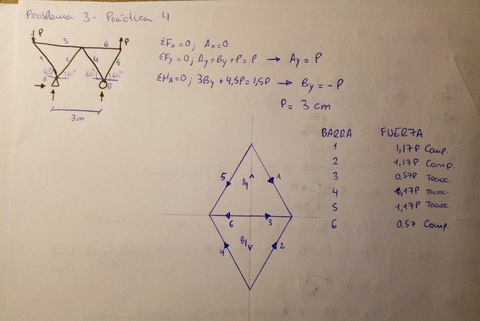 Problema 3 - Práctica 4
P
P
3
6
1
2
4
5
60°
60°
60°
60°
A
B
3m
ΣFx=0; Ax=0
ΣFy=0; Ay+By+P=P → Ay=P
ΣMA=0; 3By+4,5P=1,5P → By=-P
P= 3 cm
BARRA FUERZA
1 1,17P Comp.
2 1,17P Comp.
3 0,57P Tracc.
4 1,17P Tracc.
5 1,17P Tracc.
6 0,57 Comp.
5
Ay
1
6
3
By
4
2